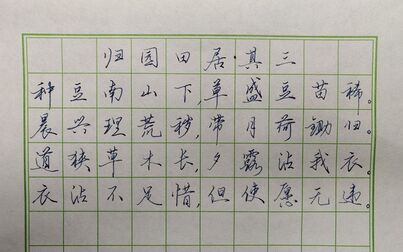 归园田居·其三
种豆南山下,草盛豆苗稀。
晨兴理荒秽,带月荷锄归。
道狭草木长,夕露沾我衣。
衣沾不足惜,但使愿无违。